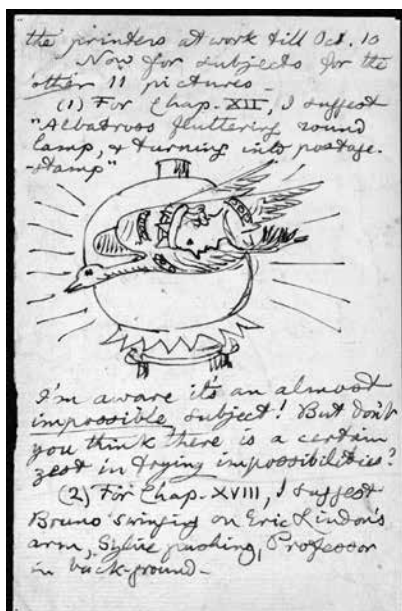 the printers at work till Oct. 10
Now for subjects for the
other 11 pictures -
(1) For Chap. XII, I suggest
"Albatross fluttering round
lamp, & turning into postage-
-stamp"
I'm aware it's an almost
impossible subject! But don't
you think there is a certain
zest in trying impossibilities?
(2) For Chap. XVIII, I suggest
Bruno swinging on Eric Lindon's
arm, Sylvie pushing, Professor
in back-ground -